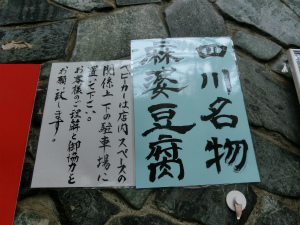 四川名物
麻婆豆腐
ベビーカーは店内スペースの
関係上、下の駐車場に
置いて下さい。
お客様のご理解と御協力を
お願い致します。